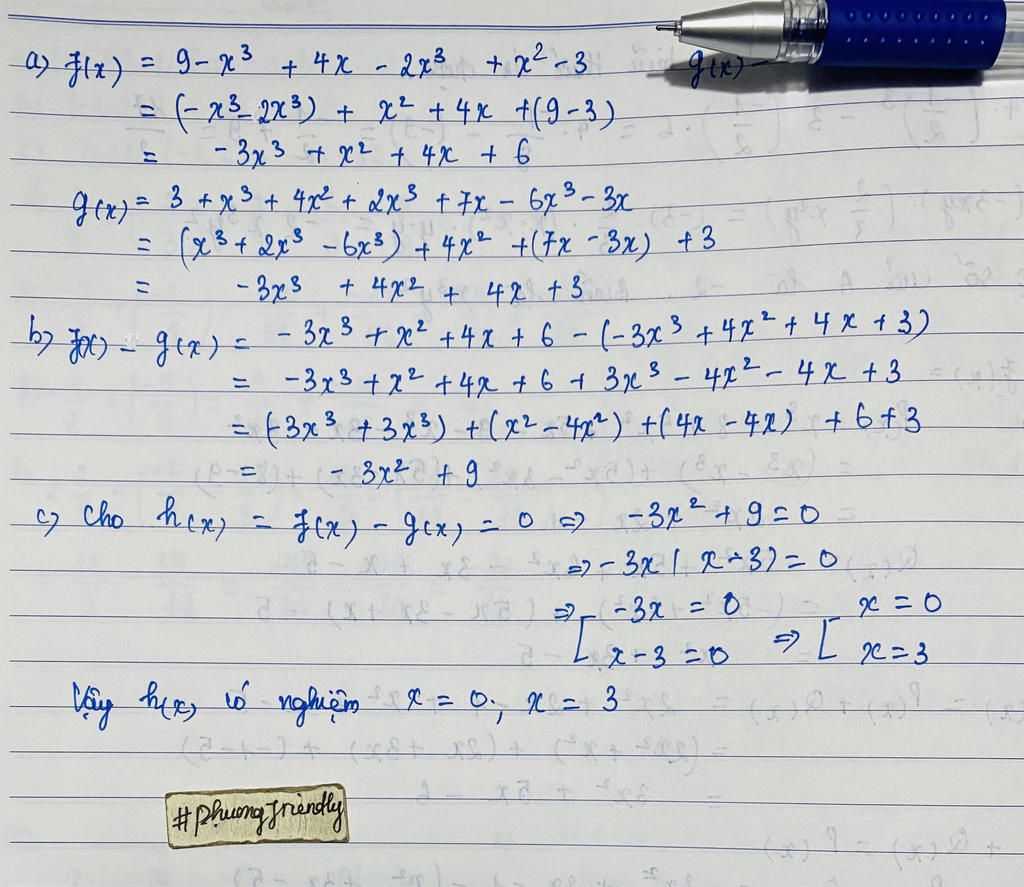 a) f(x) = 9 - x³ + 4x - 2x³ + x² - 3 g(x)
= (-x³ - 2x³) + x² + 4x + (9 - 3)
= -3x³ + x² + 4x + 6
g(x) = 3 + x³ + 4x² + 2x³ + 7x - 6x³ - 3x
= (x³ + 2x³ - 6x³) + 4x² + (7x - 3x) + 3
= -3x³ + 4x² + 4x + 3
b) f(x) - g(x) = -3x³ + x² + 4x + 6 - (-3x³ + 4x² + 4x + 3)
= -3x³ + x² + 4x + 6 + 3x³ - 4x² - 4x + 3
= (-3x³ + 3x³) + (x² - 4x²) + (4x - 4x) + 6 + 3
= -3x² + 9
c) Cho h(x) = f(x) - g(x) = 0 ⇒ -3x² + 9 = 0
⇒ -3x(x - 3) = 0
⇒ [ -3x = 0 ⇒ [ x = 0
x - 3 = 0 x = 3
Vậy h(x) có nghiệm x = 0; x = 3
#phuongfriendly